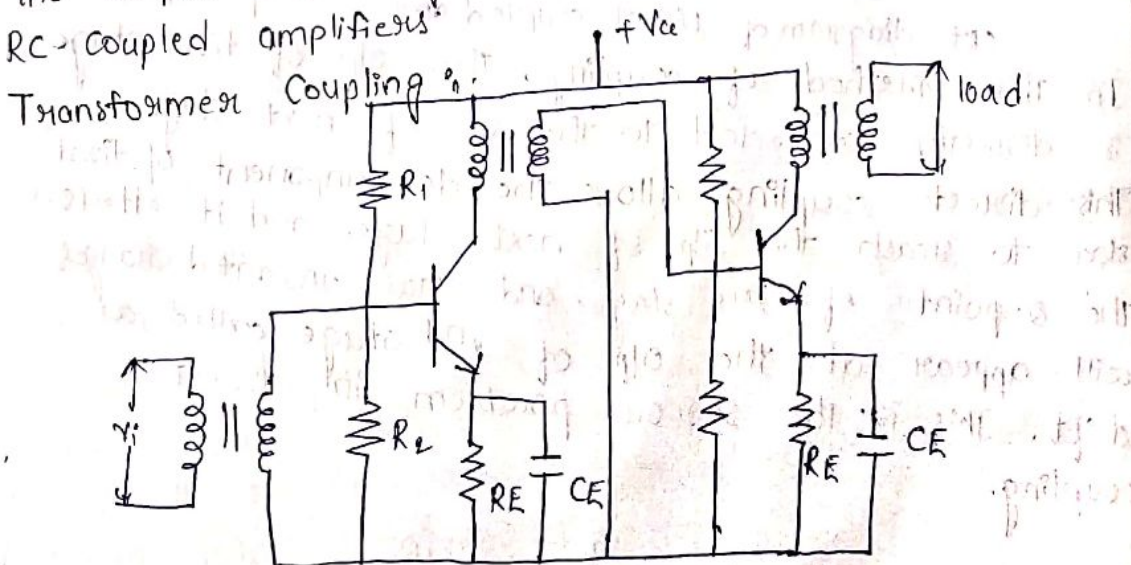 RC-Coupled amplifiers
Transformer Coupling :
+Vcc
load
R1
Vi
R2
RE
CE
RE
CE